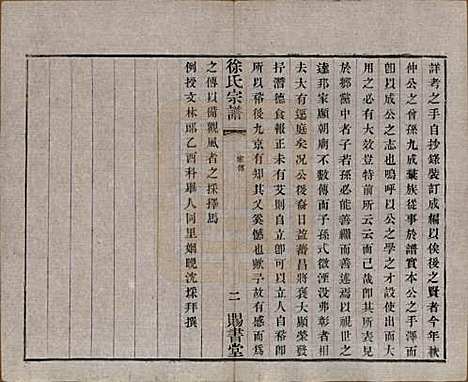 詳考之手自抄錄裝訂成編以俟後之賢者今年秋
仲公之曾孫九成葉族從事於譜實本公之手澤而
卽以成公之志也嗚呼以公之學之才設使出而大
用之必有大效登特前所云云而已哉卽其所表見
於鄉黨中者子若孫必能善繼而善述焉以視世之
達邦家顯朝廟不數傳而子孫式微湮没弗彰者相
去大有逕庭矣况公後裔日益蕃昌將襃大顯榮發
抒潛德食報正未有艾則自立卽可以立人自裕卽
所以裕後九京有知其又奚憾也歟予故有感而為
徐氏宗譜
家傳
二
賜書堂
之傳以備觀風者之採擇焉
例授文林郎乙酉科舉人同里姻晚沈採拜撰